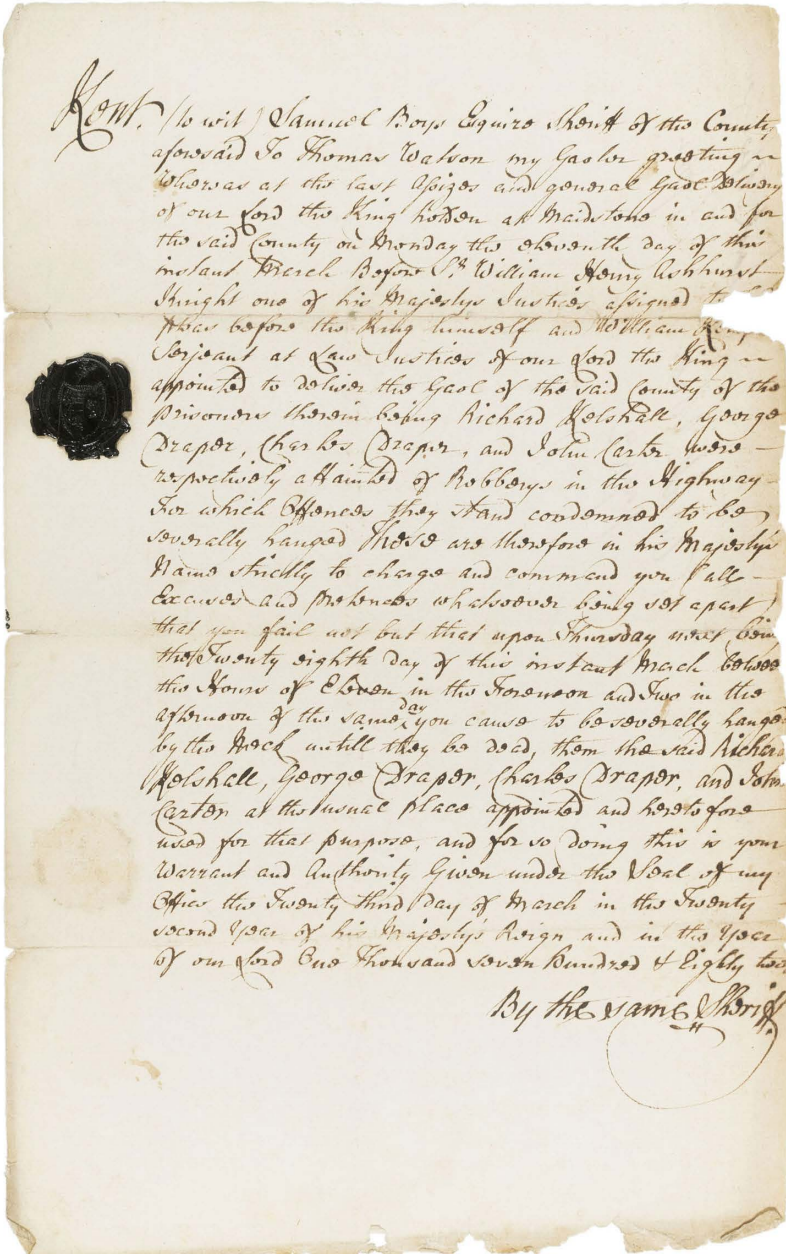 Kent. (to wit) Samuel Boys Esquire Sheriff of the County
aforesaid To Thomas Watson my Gaoler greeting
Whereas at the last Assizes and general Gaol Delivery
of our Lord the King holden at Maidstone in and for
the said County on Monday the eleventh day of this
instant March Before Sr. William Henry Ashhurst
Knight one of his Majestys Justices assigned to
Pleas before the King himself and William
Serjeant at Law Justices of our Lord the King
appointed to deliver the Gaol of the said County of the
Prisoners therein being Richard Kelshall, George
Draper, Charles Draper, and John Carter were
respectively attainted of Robberys in the Highway
For which Offences they stand condemned to be
severally hanged These are therefore in his Majesty's
Name strictly to charge and command you (all
Excuses and pretences whatsoever being set apart)
that you fail not but that upon Thursday next being
the Twenty eighth Day of this instant Mach betwee
the Hours of Eleven in the Forenoon and Two in the
afternoon of the same day you cause to be severally hanged
by the Neck untill they be dead, them the said Richard
Kelshall, George Draper, Charles Draper, and John
Carter at the usual place appointed and heretofore
used for that purpose, and for so doing this is your
Warrant and Authority Given under the Seal of my
Office the Twenty third Day of March in the Twenty
second Year of his Majesty's Reign and in the Year
of our Lord One Thousand seven hundred & Eighty two
By the same Sheriff.